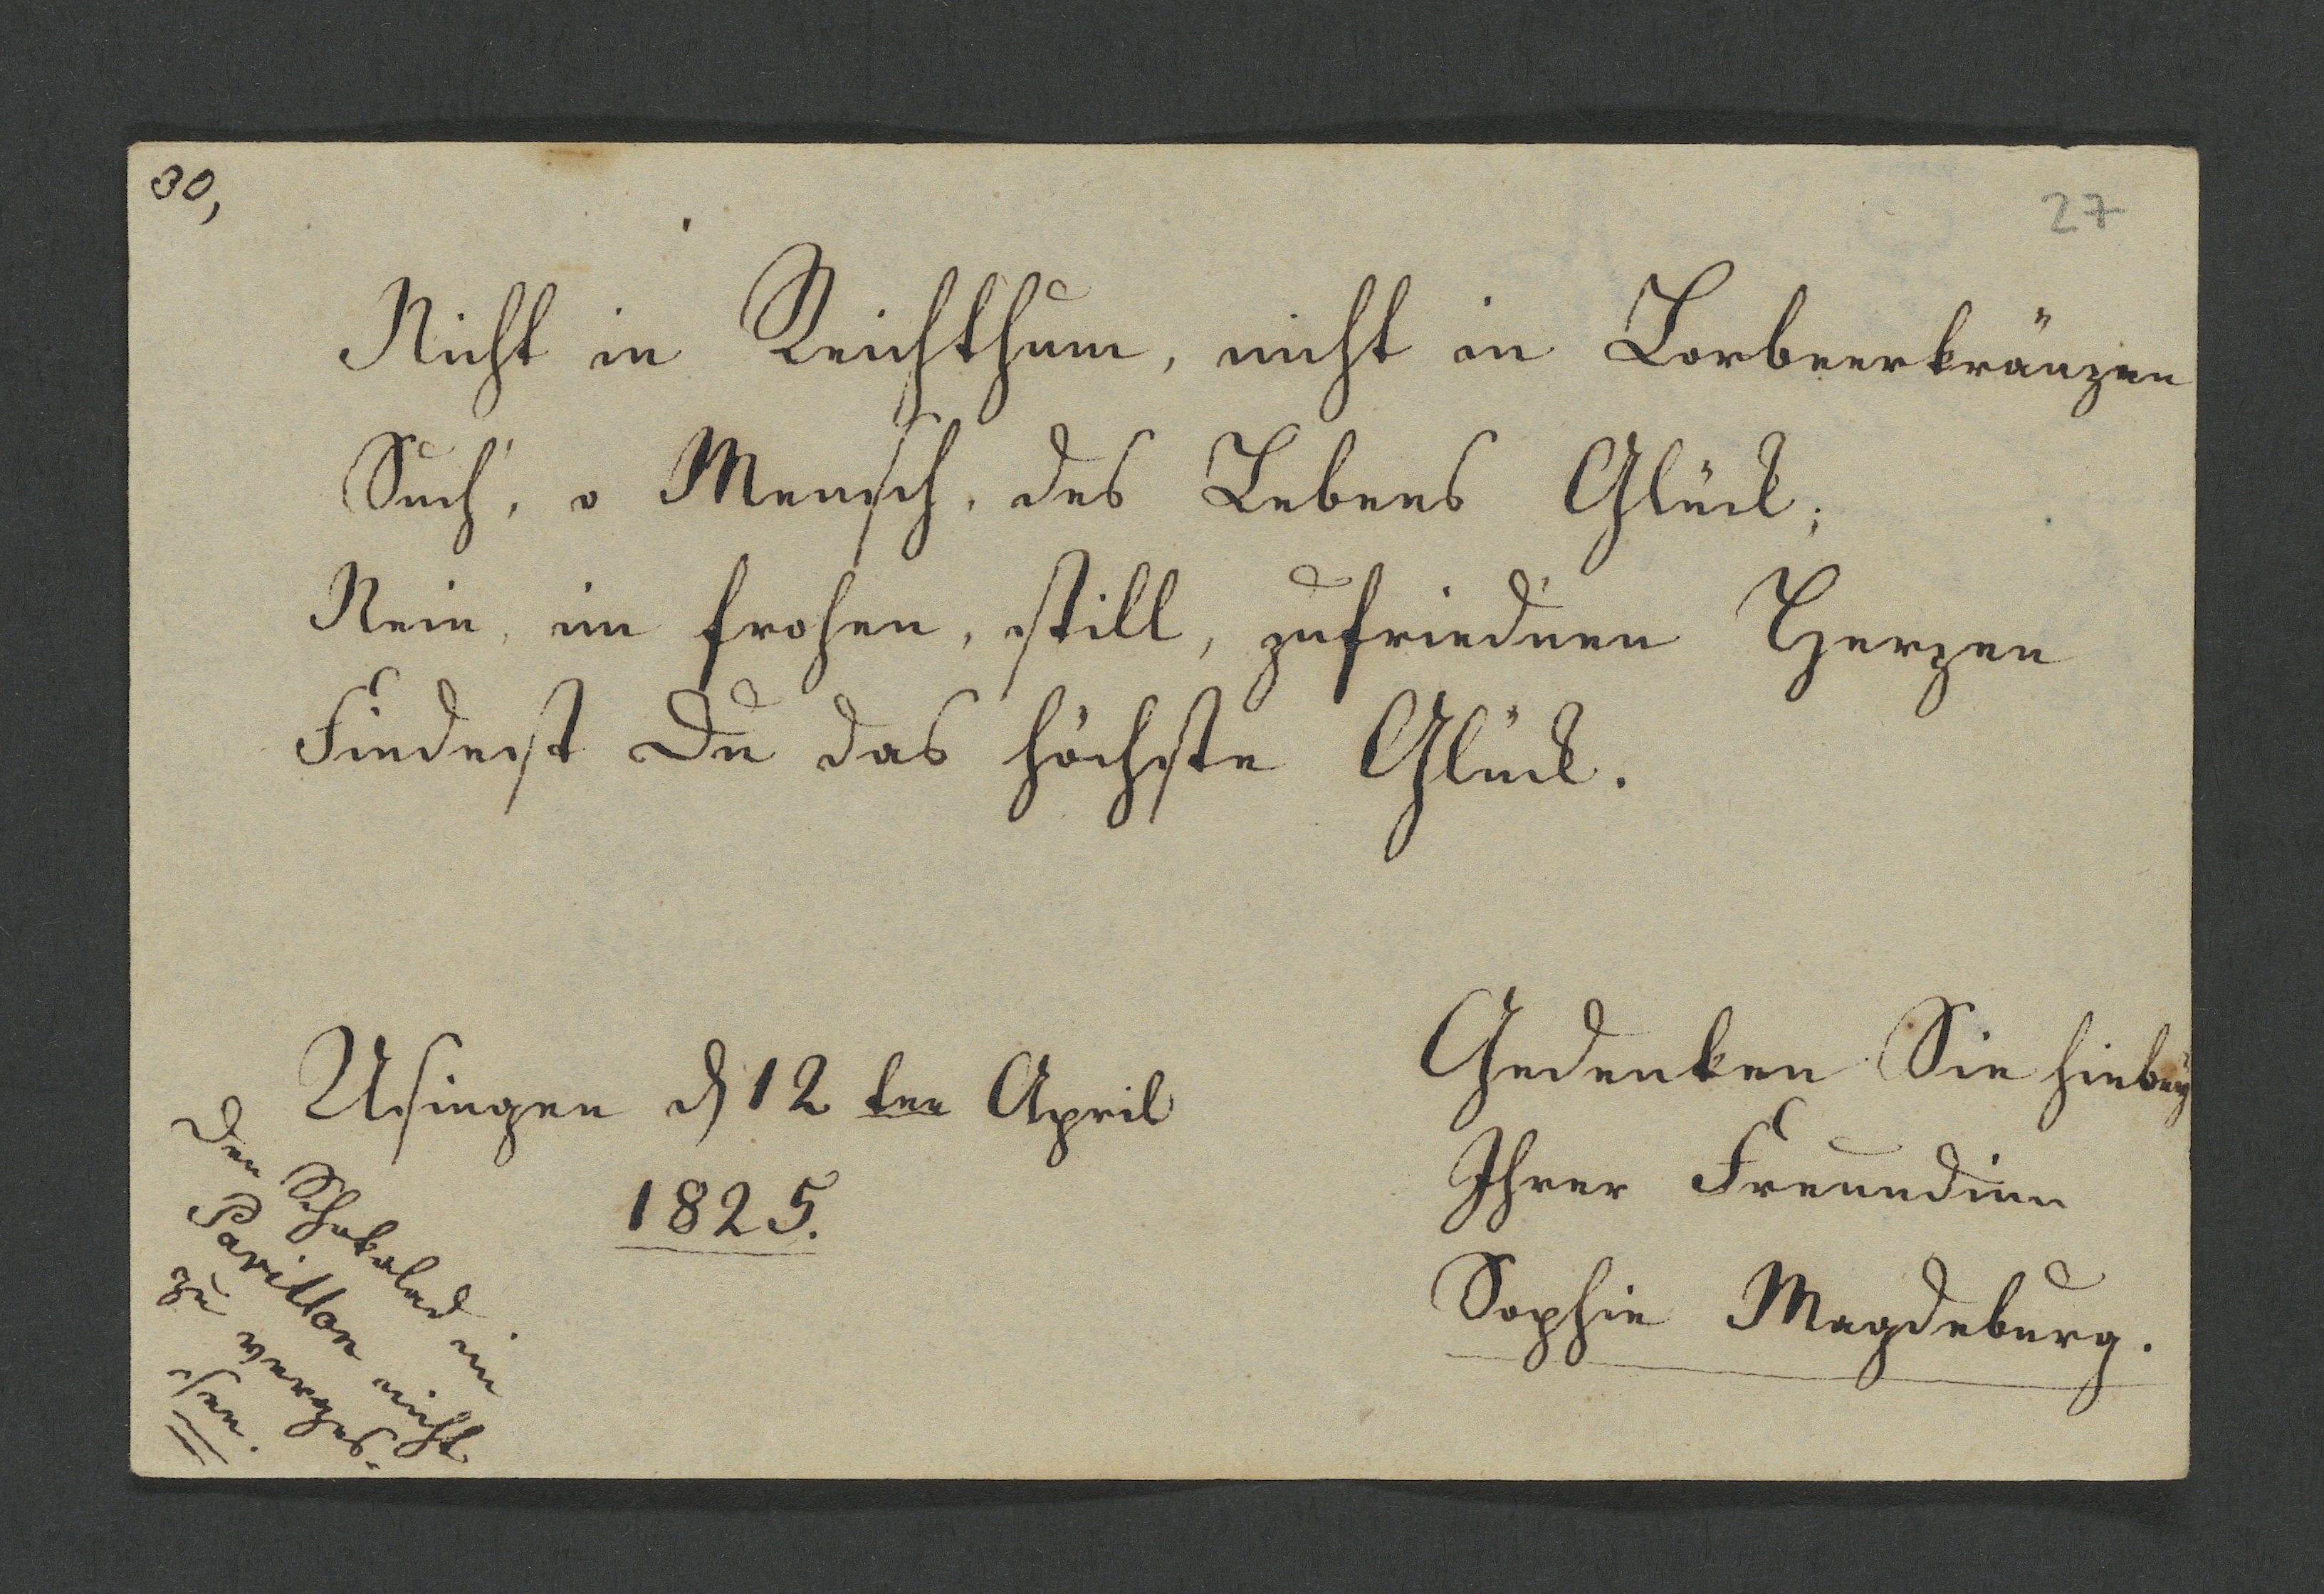 30,
27
Nicht in Reichthum, nicht in Lorbeerkränzen
Such', o Mensch, des Lebens Glück;
Nein, im frohen, still, zufriednen Herzen
Findest Du das höchste Glück.
Usingen d 12 ten April
1825.
Gedenken Sie hiebey
Ihrer Freundinn
Sophie Magdeburg.
Den Schokolad in
Pavillon nicht
zu verges-
sen.